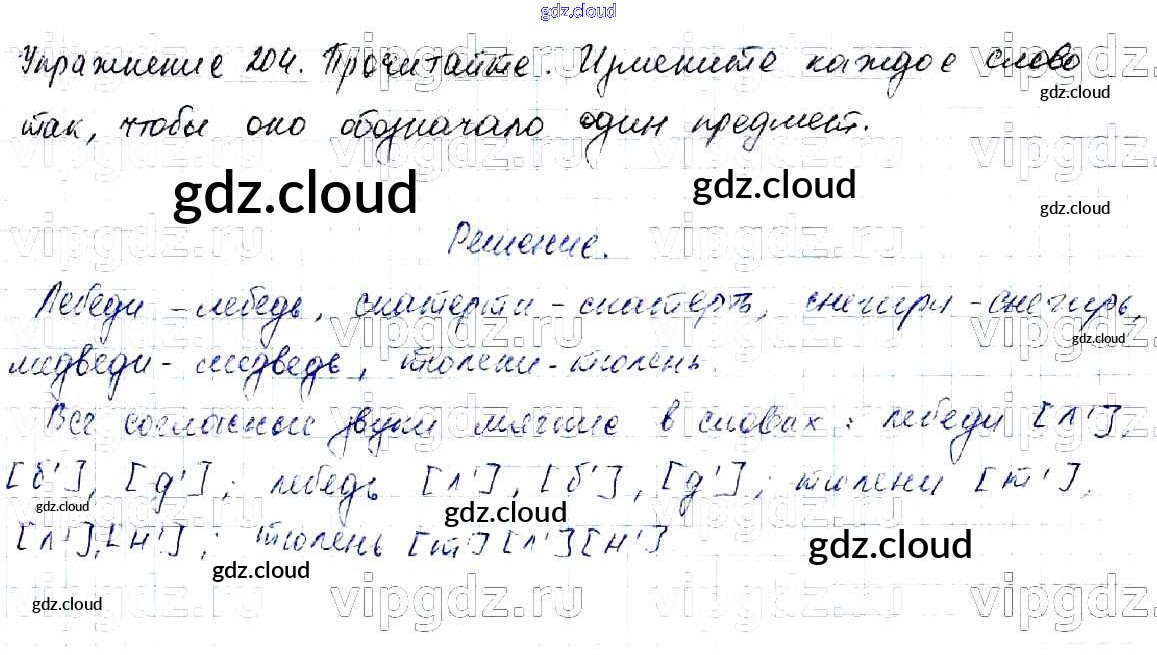 gdz.cloud
Упражнение 204. Прочитайте. Измените каждое слово
gdz.cloud
так, чтобы оно обозначало один предмет.
gdz.cloud
gdz.cloud
gdz.cloud
vipgdz.ru
Решение.
Лебеди - лебедь, скатерти - скатерть, снегири - снегирь,
gdz.cloud
медведи - медведь, тюлени - тюлень.
Все согласные звуки мягкие в словах: лебеди [л'],
[б'], [д']; лебедь [л'], [б'], [д']; тюлени [т'],
gdz.cloud
gdz.cloud
[л'], [н']; тюлень [т'] [л'] [н']
gdz.cloud
gdz.cloud
gdz.cloud
vipgdz.ru